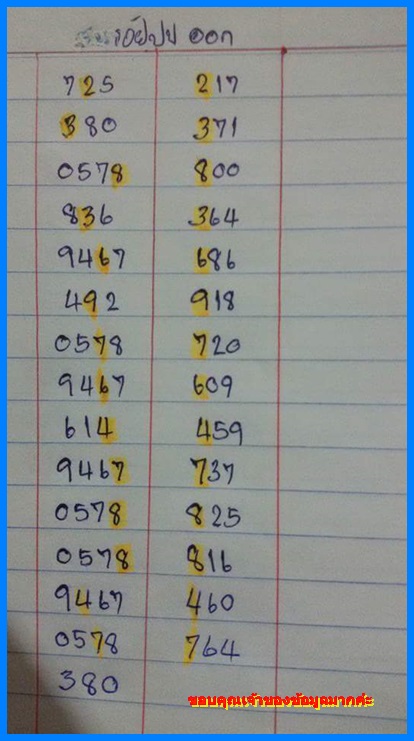 ออก
725 217
380 371
0578 800
836 364
9467 686
492 918
0578 720
9467 609
614 459
9467 737
0578 825
0578 816
9467 460
0578 764
380
ขอบคุณเจ้าของข้อมูลมากค่ะ